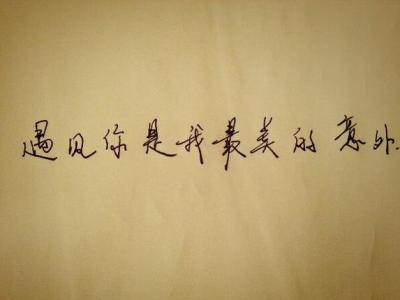 遇见你是我最美的意外.